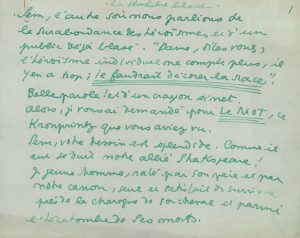 La dernière heure
1
Sem, l'autre soir nous parlions de
la surabondance des héroïsmes et d'un
public déjà blasé. "Dame, dites vous,
l'héroïsme individuel ne compte plus, il
y en a trop; il faudrait décorer la race".
Belle parole! et d'un crayon si net.
alors, je vous ai demandé pour Le Mot, ce
Kronprinz que vous aviez vu.
Sem, votre dessin est splendide. Comme il
eut séduit notre allié Shakspeare!
Ce jeune homme, râlé par son père et par
notre canon, seul et satisfait de survivre
près de la charogne de son cheval et parmi
l'hécatombe de ses morts.